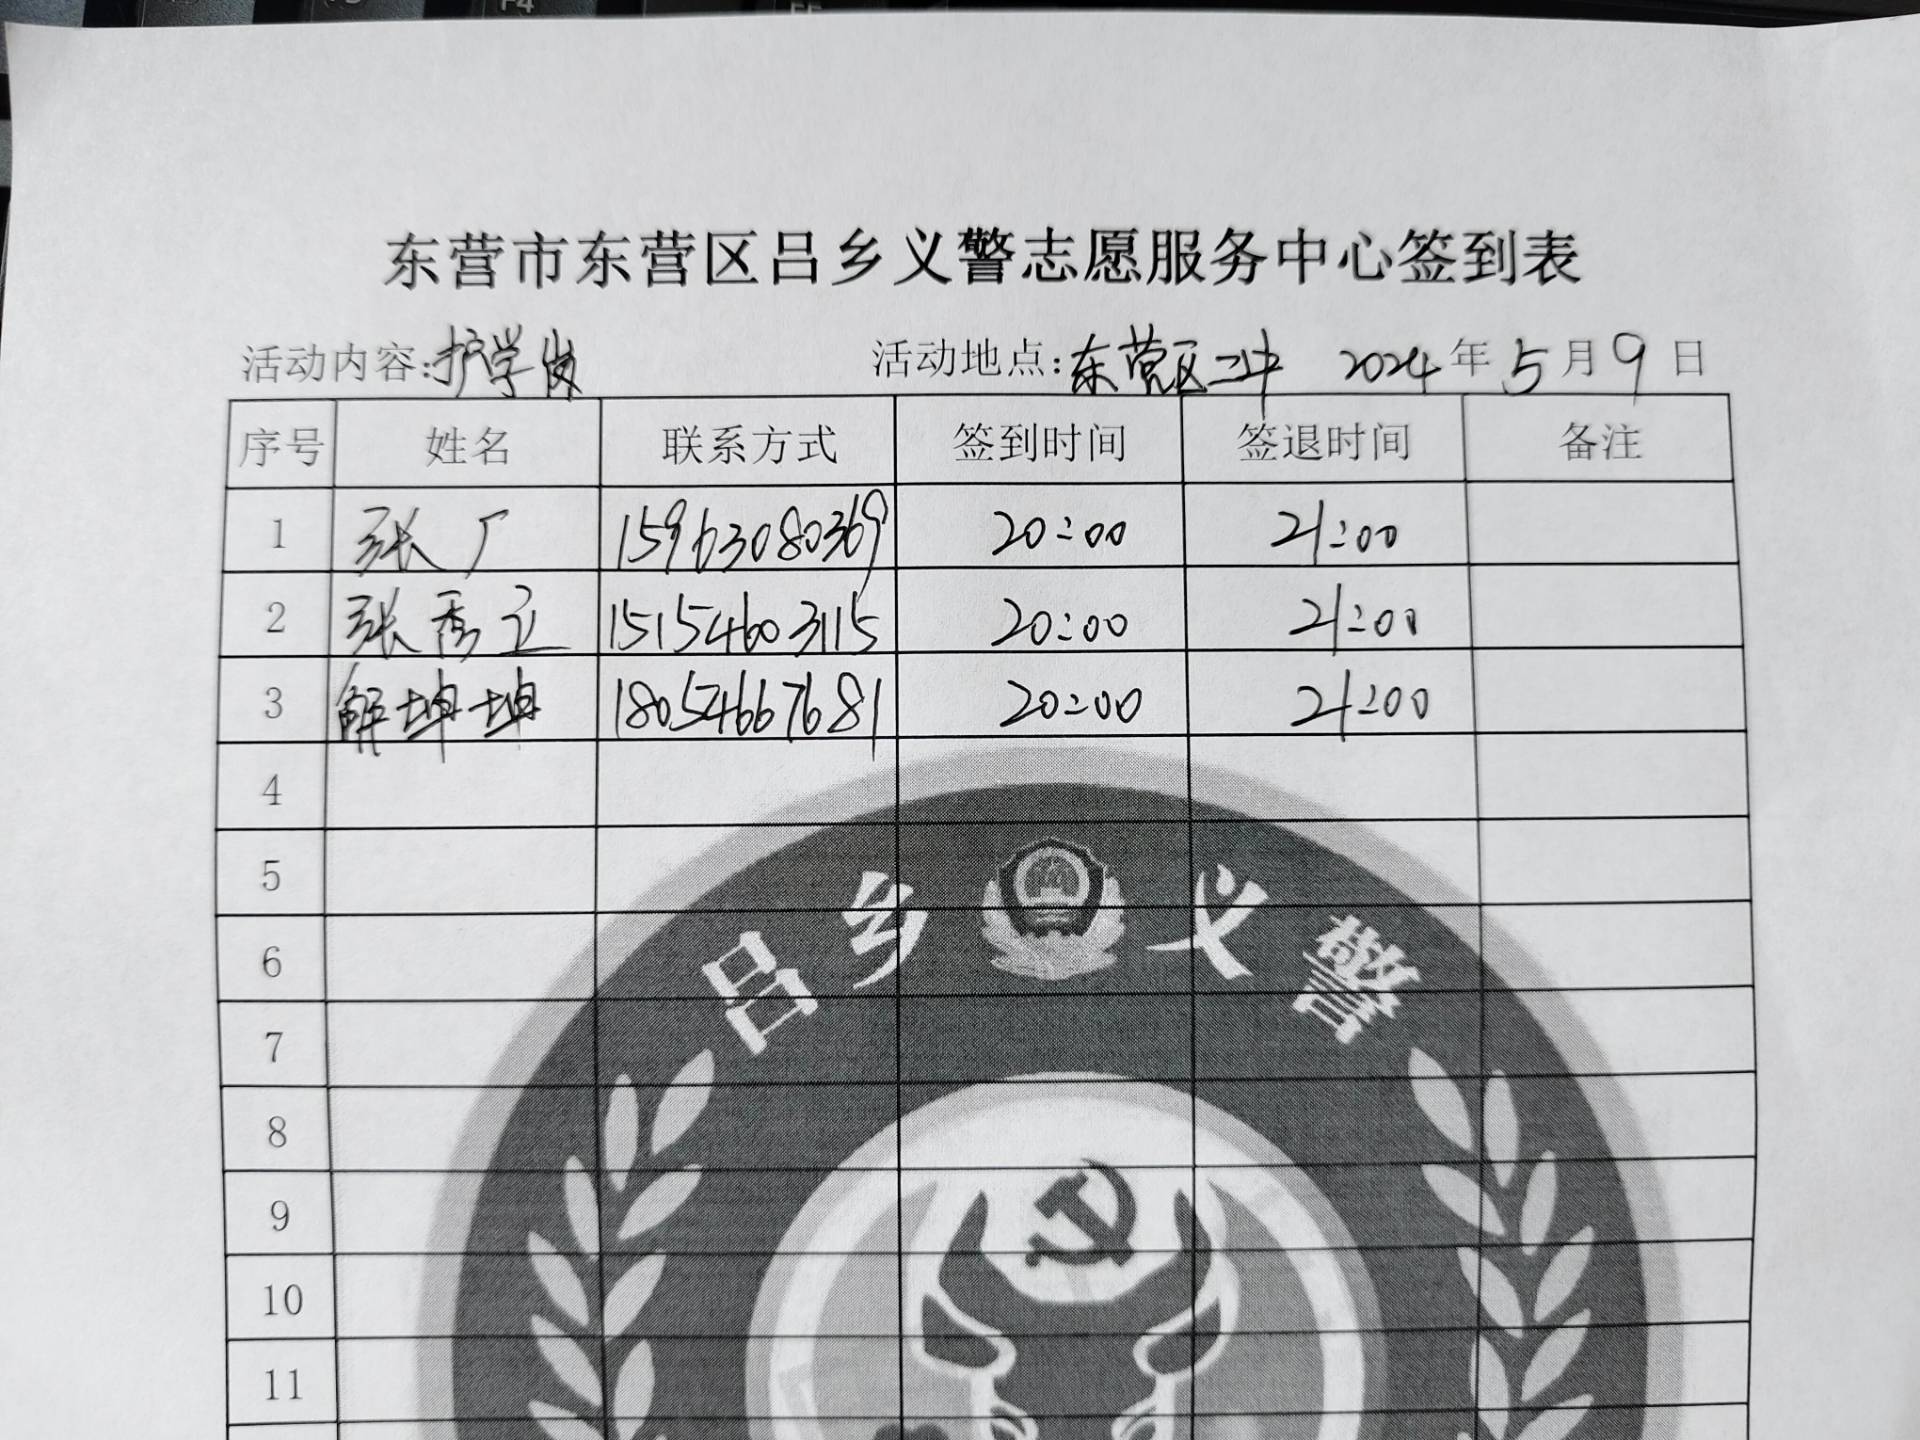 东营市东营区吕乡义警志愿服务中心签到表
活动内容:护学岗 活动地点:东营区二中 2024年5月9日
序号 姓名 联系方式 签到时间 签退时间 备注
1 张广 15963080369 20:00 21:00
2 张秀立 15154603115 20:00 21:00
3 解坤坤 18054667681 20:00 21:00
4
5
吕乡义警
6
7
8
9
10
11